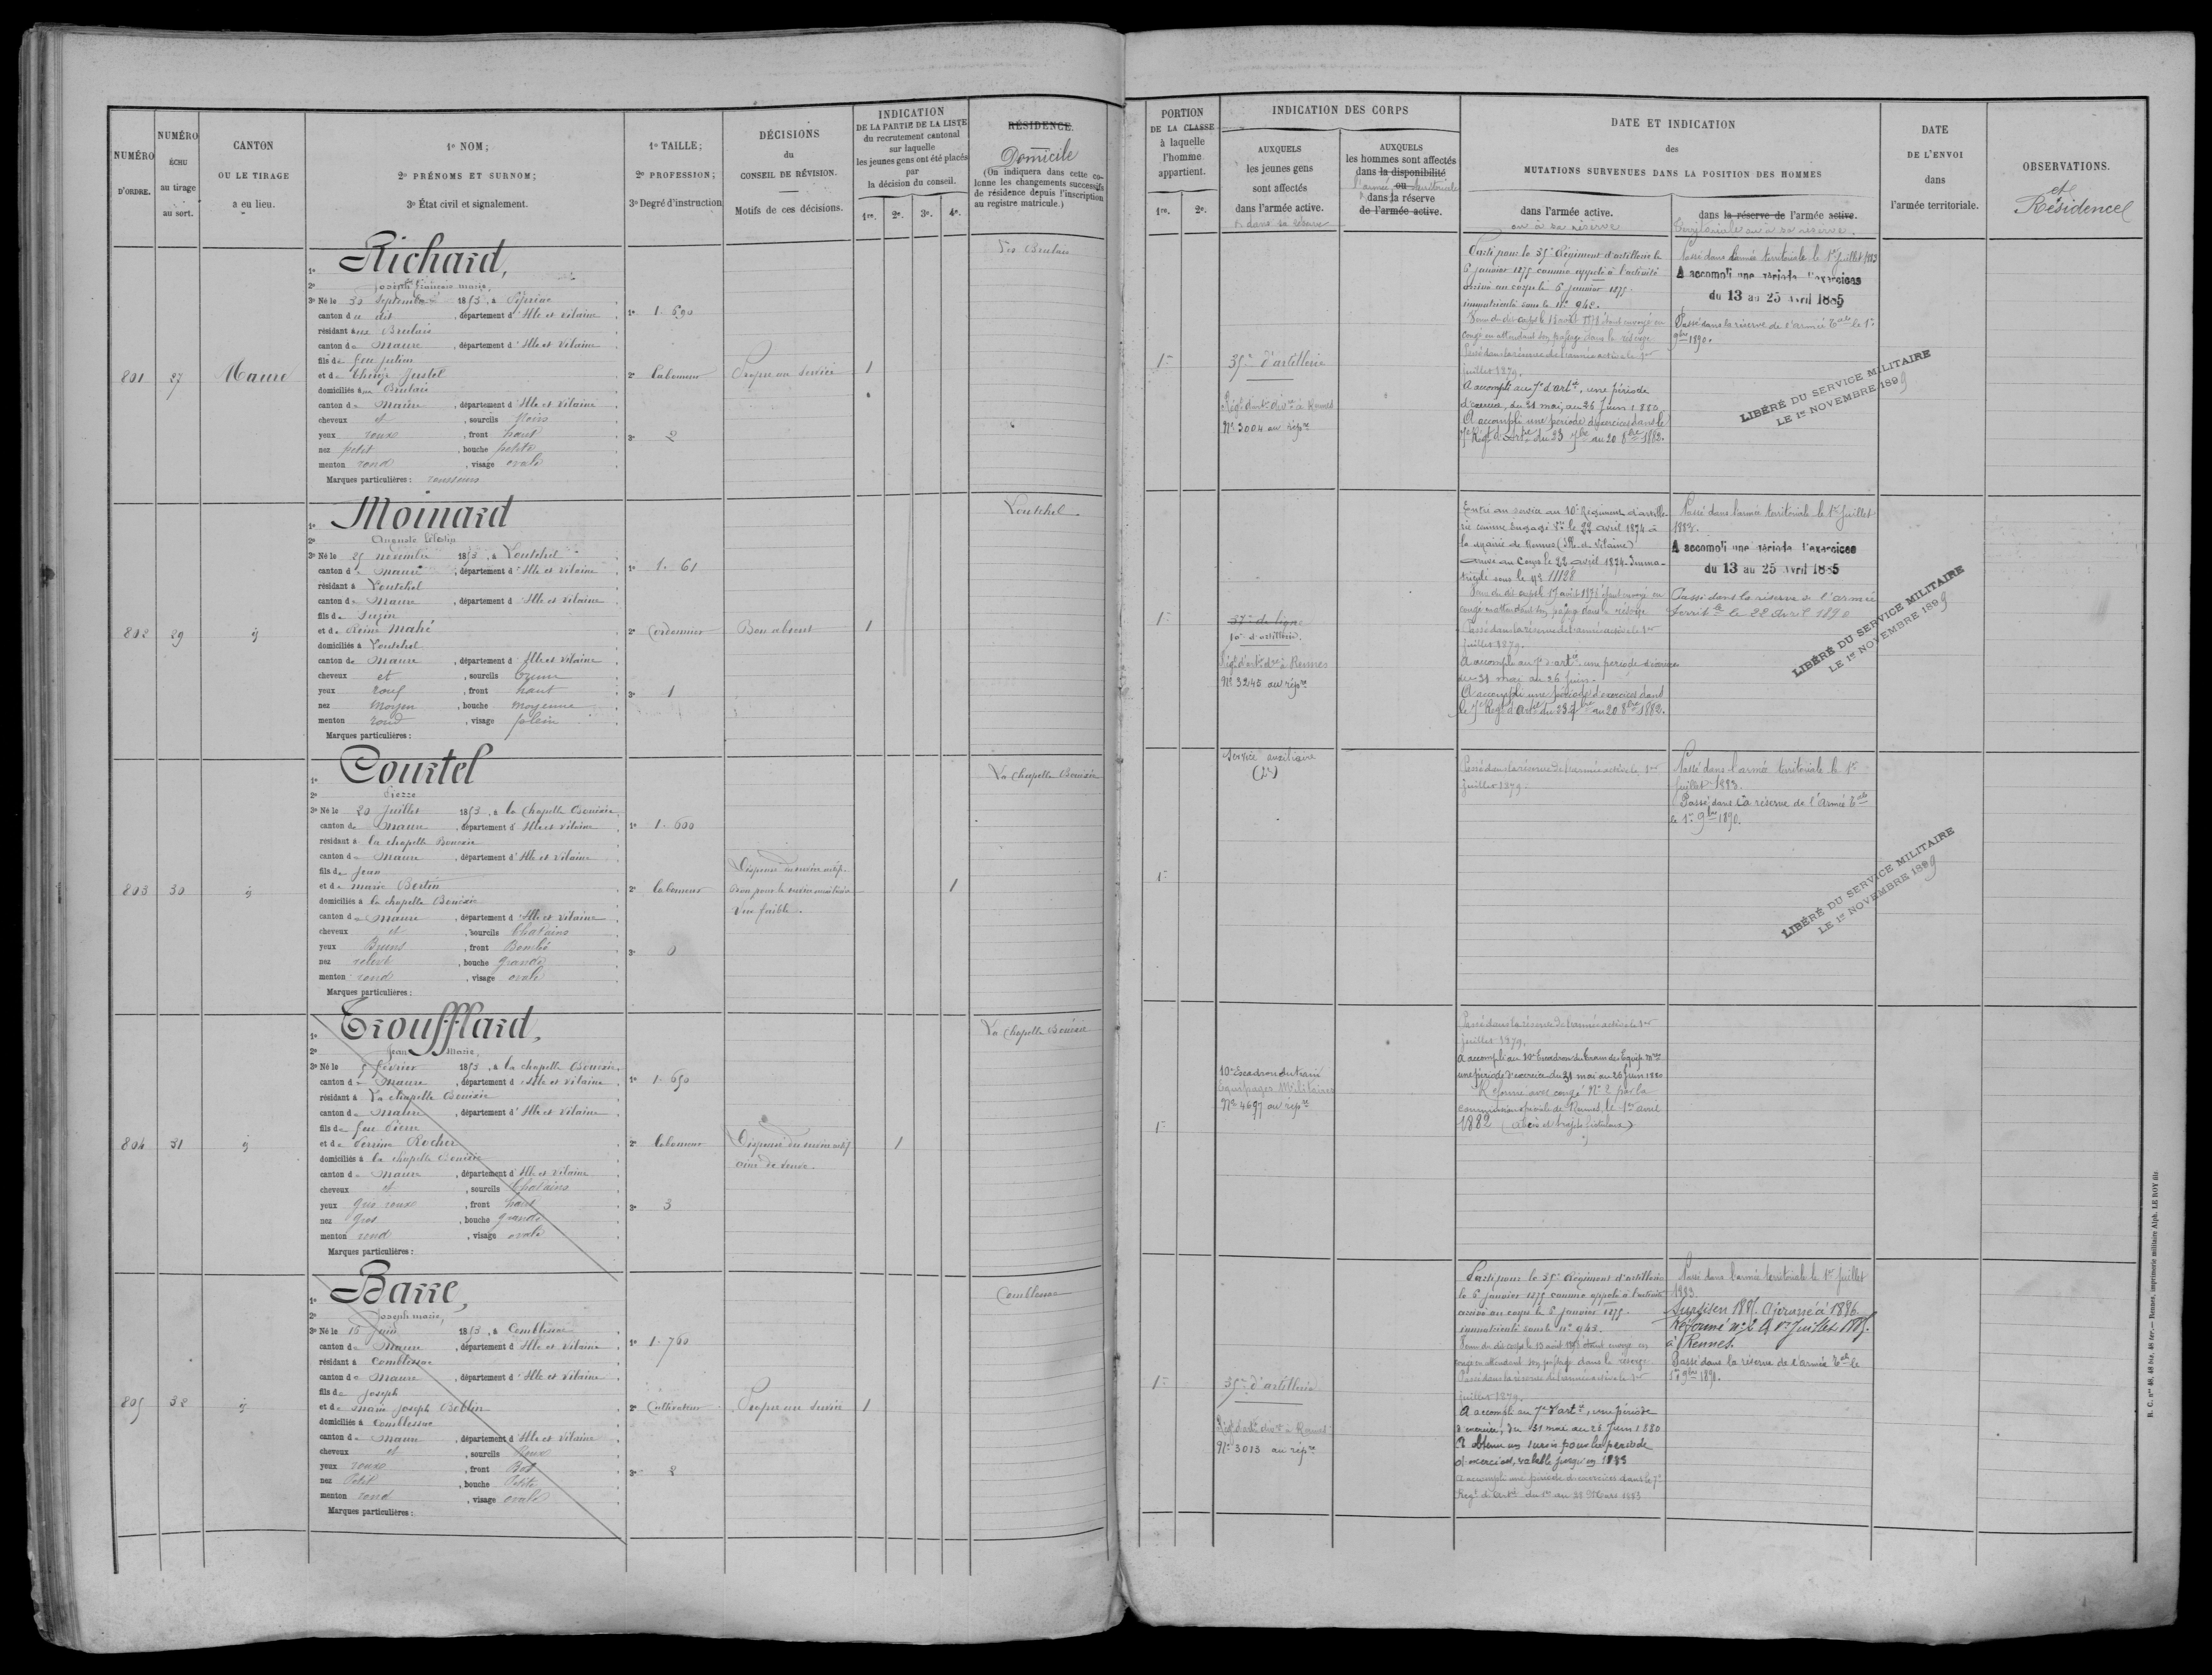 NUMÉRO
D'ORDRE.
NUMÉRO
ÉCHU
au tirage
au sort.
CANTON
OU LE TIRAGE
a eu lieu.
1º NOM;
2º PRÉNOMS ET SURNOM;
3º État civil et signalement.
1º TAILLE;
2º PROFESSION;
3º Degré d'instruction
DÉCISIONS
du
CONSEIL DE RÉVISION.
Motifs de ces décisions.
INDICATION
DE LA PARTIE DE LA LISTE
du recrutement cantonal
sur laquelle
les jeunes gens ont été placés
par
la décision du conseil.
1re. 2e. 3e. 4e.
RÉSIDENCE.
Domicile
(On indiquera dans cette co-
lonne les changements successifs
de résidence depuis l'inscription
au registre matricule.)
PORTION
DE LA CLASSE
à laquelle
l'homme
appartient.
1re. 2e.
INDICATION DES CORPS
AUXQUELS
les jeunes gens
sont affectés
dans l'armée active.
et dans sa réserve
AUXQUELS
les hommes sont affectés
dans la disponibilité
ou
l'armée territoriale
dans la réserve
de l'armée active.
DATE ET INDICATION
des
MUTATIONS SURVENUES DANS LA POSITION DES HOMMES
dans l'armée active.
ou à sa réserve
dans la réserve de l'armée active.
Territoriale ou à sa réserve.
DATE
DE L'ENVOI
dans
l'armée territoriale.
OBSERVATIONS.
et
Résidence
801
27
Maure
1º Richard,
2º Joseph François marie,
3º Né le 30 Septembre 1853, à Piprian
canton du dit, département d'Ille et Vilaine
résidant aux Brulais
canton de Maure, département d'Ille et Vilaine
fils de feu Julien
et de Thérèse Justel
domiciliés aux Brulais
canton de Maure, département d'Ille et Vilaine
cheveux et, sourcils Noirs
yeux roux, front haut
nez petit, bouche petite
menton rond, visage ovale
Marques particulières : rousseurs
1º 1. 690
2º laboureur
3º 2
Propre au service
1
Les Brulais
1re
35e d'artillerie
Régt d'artie divre à Rennes
Nº 3004 au répre
Parti pour le 35e Régiment d'artillerie le
6 janvier 1875 comme appelé à l'activité
arrivé au corps le 6 janvier 1875.
immatriculé sous le nº 942.
congé en attendant son passage dans la réserve
Passé dans la réserve de l'armée active le 1er
juillet 1879.
A accompli au 7e d'artie, une période
d'exercices, du 31 mai, au 26 Juin 1880
A accompli une période d'exercices dans le
7e Régt d'Artie du 23 7bre au 20 8bre 1882.
Passé dans l'armée territoriale le 1er Juillet 1883
A accompli une période d'exercices
du 13 au 25 avril 1885
Passé dans la réserve de l'armée Tale le 1er
9bre 1890.
LIBÉRÉ DU SERVICE MILITAIRE
LE 1er NOVEMBRE 1899
802
29
id
1º Moinard
2º Auguste Célestin
3º Né le 25 novembre 1853, à Loutehel
canton de Maure, département d'Ille et Vilaine
résidant à Loutehel
canton de Maure, département d'Ille et Vilaine
fils de
et de Reine Mahé
domiciliés à Loutehel
canton de Maure, département d'Ille et Vilaine
cheveux et, sourcils brun
yeux roux, front haut
nez Moyen, bouche moyenne
menton rond, visage plein
Marques particulières :
1º 1. 61
2º Cordonnier
3º 1
Bon absent
1
Loutehel
1re
37e de ligne
10e d'artillerie.
Régt d'artie dre à Rennes
Nº 3245 au répre
Entré au service au 10e Régiment d'artille-
rie comme Engagé Vre le 22 avril 1874 à
la Mairie de Rennes (Ille et Vilaine)
arrivé au Corps le 22 avril 1874. Imma-
triculé sous le Nº 11128
congé en attendant son passage dans la réserve
Passé dans la réserve de l'armée active le 1er
juillet 1879.
A accompli au 7e d'artie, une période d'exercices
du 31 mai au 26 Juin.
A accompli une période d'exercices dans
le 7e Régt d'Artie du 23 7bre au 20 8bre 1882.
Passé dans l'armée territoriale le 1er Juillet
1883.
A accompli une période d'exercices
du 13 au 25 avril 1885
Passé dans la réserve de l'armée
territle le 22 Avril 1890
LIBÉRÉ DU SERVICE MILITAIRE
LE 1er NOVEMBRE 1899
803
30
id
1º Courtel
2º Pierre
3º Né le 20 Juillet 1853, à la Chapelle Bouëxic
canton de Maure, département d'Ille et Vilaine
résidant à la chapelle Bouëxic
canton de Maure, département d'Ille et Vilaine
fils de Jean
et de marie Bertin
domiciliés à la chapelle Bouëxic
canton de Maure, département d'Ille et Vilaine
cheveux et, sourcils Chatains
yeux Bruns, front Bombé
nez relevé, bouche grande
menton rond, visage ovale
Marques particulières :
1º 1. 600
2º laboureur
3º 0
Dispensé du service actif.
Bon pour le service auxiliaire
Vue faible.
1
La Chapelle Bouëxic
1re
Service auxiliaire
Passé dans la réserve de l'armée active le 1er
juillet 1879.
Passé dans l'armée territoriale le 1er
Juillet 1883.
Passé dans la réserve de l'Armée Tale
le 1er 9bre 1890.
LIBÉRÉ DU SERVICE MILITAIRE
LE 1er NOVEMBRE 1899
804
31
id
1º Troufflard,
2º Jean Marie,
3º Né le 5 février 1853, à la chapelle Bouëxic
canton de Maure, département d'Ille et Vilaine
résidant à La chapelle Bouëxic
canton de Maure, département d'Ille et Vilaine
fils de feu Pierre
et de Perrine Rocher
domiciliés à la chapelle Bouëxic
canton de Maure, département d'Ille et Vilaine
cheveux et, sourcils Chatains
yeux gris roux, front haut
nez gros, bouche grande
menton rond, visage ovale
Marques particulières :
1º 1. 650
2º laboureur
3º 3
Dispensé du service actif
ainé de veuve.
1
La Chapelle Bouëxic
1re
10e Escadron du train
Equipages Militaires
Nº 4697 au répre
Passé dans la réserve de l'armée active le 1er
juillet 1879.
A accompli au 10e Escadron du train des Equip. Mres
une période d'exercice du 31 mai au 26 Juin 1880
Réformé avec congé Nº 2 par la
commission spéciale de Rennes, le 1er avril
1882 (abcès et trajets fistuleux)
805
32
id
1º Barre,
2º Joseph marie,
3º Né le 15 Juin 1853, à Comblessac
canton de Maure, département d'Ille et Vilaine
résidant à Comblessac
canton de Maure, département d'Ille et Vilaine
fils de Joseph
et de marie Joseph Boblin
domiciliés à Comblessac
canton de Maure, département d'Ille et Vilaine
cheveux et, sourcils Roux
yeux roux, front Bas
nez Petit, bouche Petite
menton rond, visage ovale
Marques particulières :
1º 1. 760
2º Cultivateur
3º 2
Propre au Service
1
Comblessac
1re
35e d'artillerie
Régt d'artie divre à Rennes
Nº 3013 au répre
Parti pour le 35e Régiment d'artillerie
le 6 janvier 1875 comme appelé à l'activité
arrivé au corps le 6 janvier 1875.
immatriculé sous le nº 943.
congé en attendant son passage dans la réserve
Passé dans la réserve de l'armée active le 1er
juillet 1879.
A accompli au 7e d'artie, une période
d'exercices, du 31 mai au 26 Juin 1880
A obtenu un sursis pour la période
d'exercices, valable jusqu'en 1883
A accompli une période d'exercices dans le 7e
Régt d'Artie du 1er au 28 Mars 1883
Passé dans l'armée territoriale le 1er Juillet
1883.
Sursis en 1885. Ajourné à 1886.
Réformé nº 2 le 1er Juillet 1885.
à Rennes.
Passé dans la réserve de l'armée Tale le
1er 9bre 1890.
R. C. nos 46, 46 bis, 46 ter.— Rennes, imprimerie militaire Alph. LE ROY fils